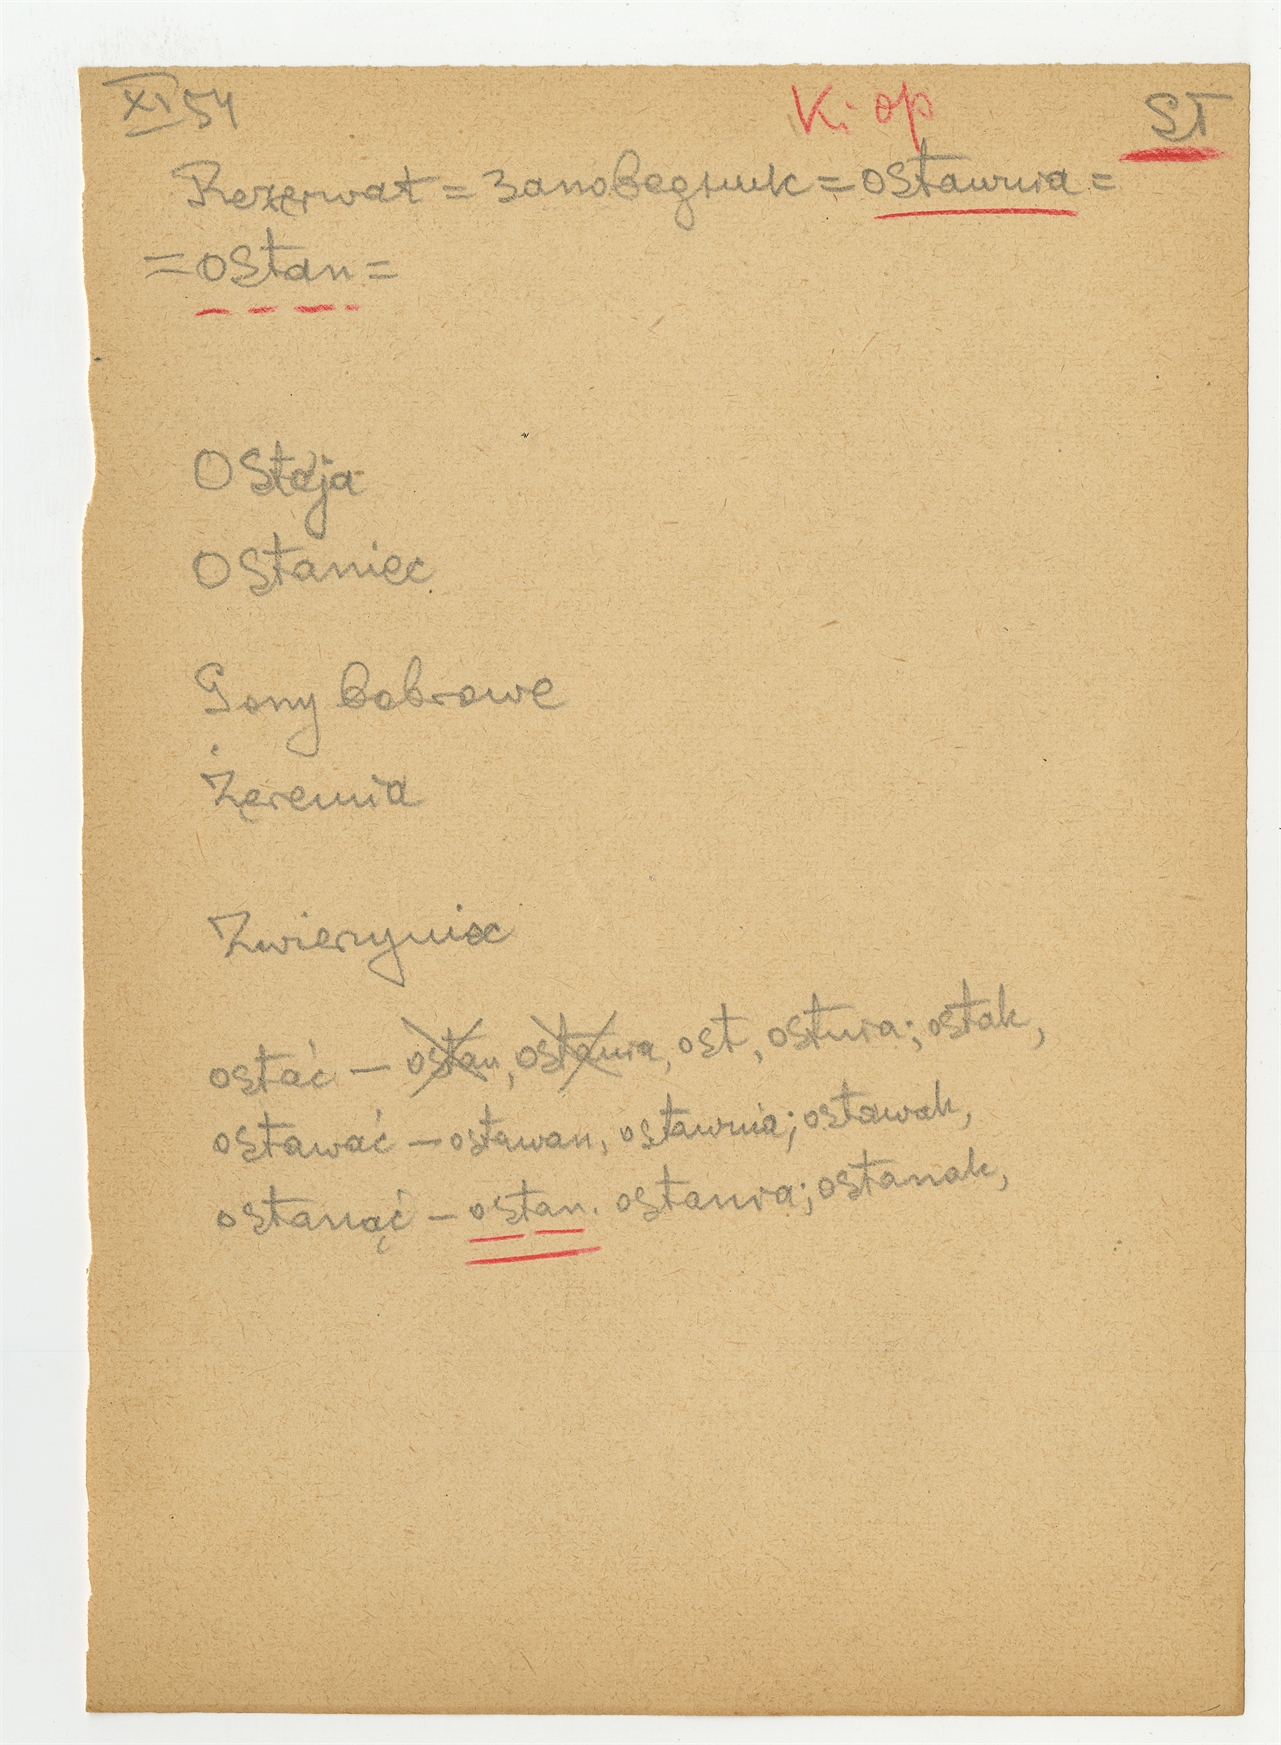 XI 54 K. op ST
Rezerwat = Заповедник = Ostawnia =
= Ostan =
Ostoja
Ostaniec
Gony bobrowe
Żeremia
Zwierzyniec
ostać – ostan, ostania, ost, ostnia; ostak,
ostawać – ostawan, ostawnia; ostawak,
ostanąć – ostan. ostania; ostanak,